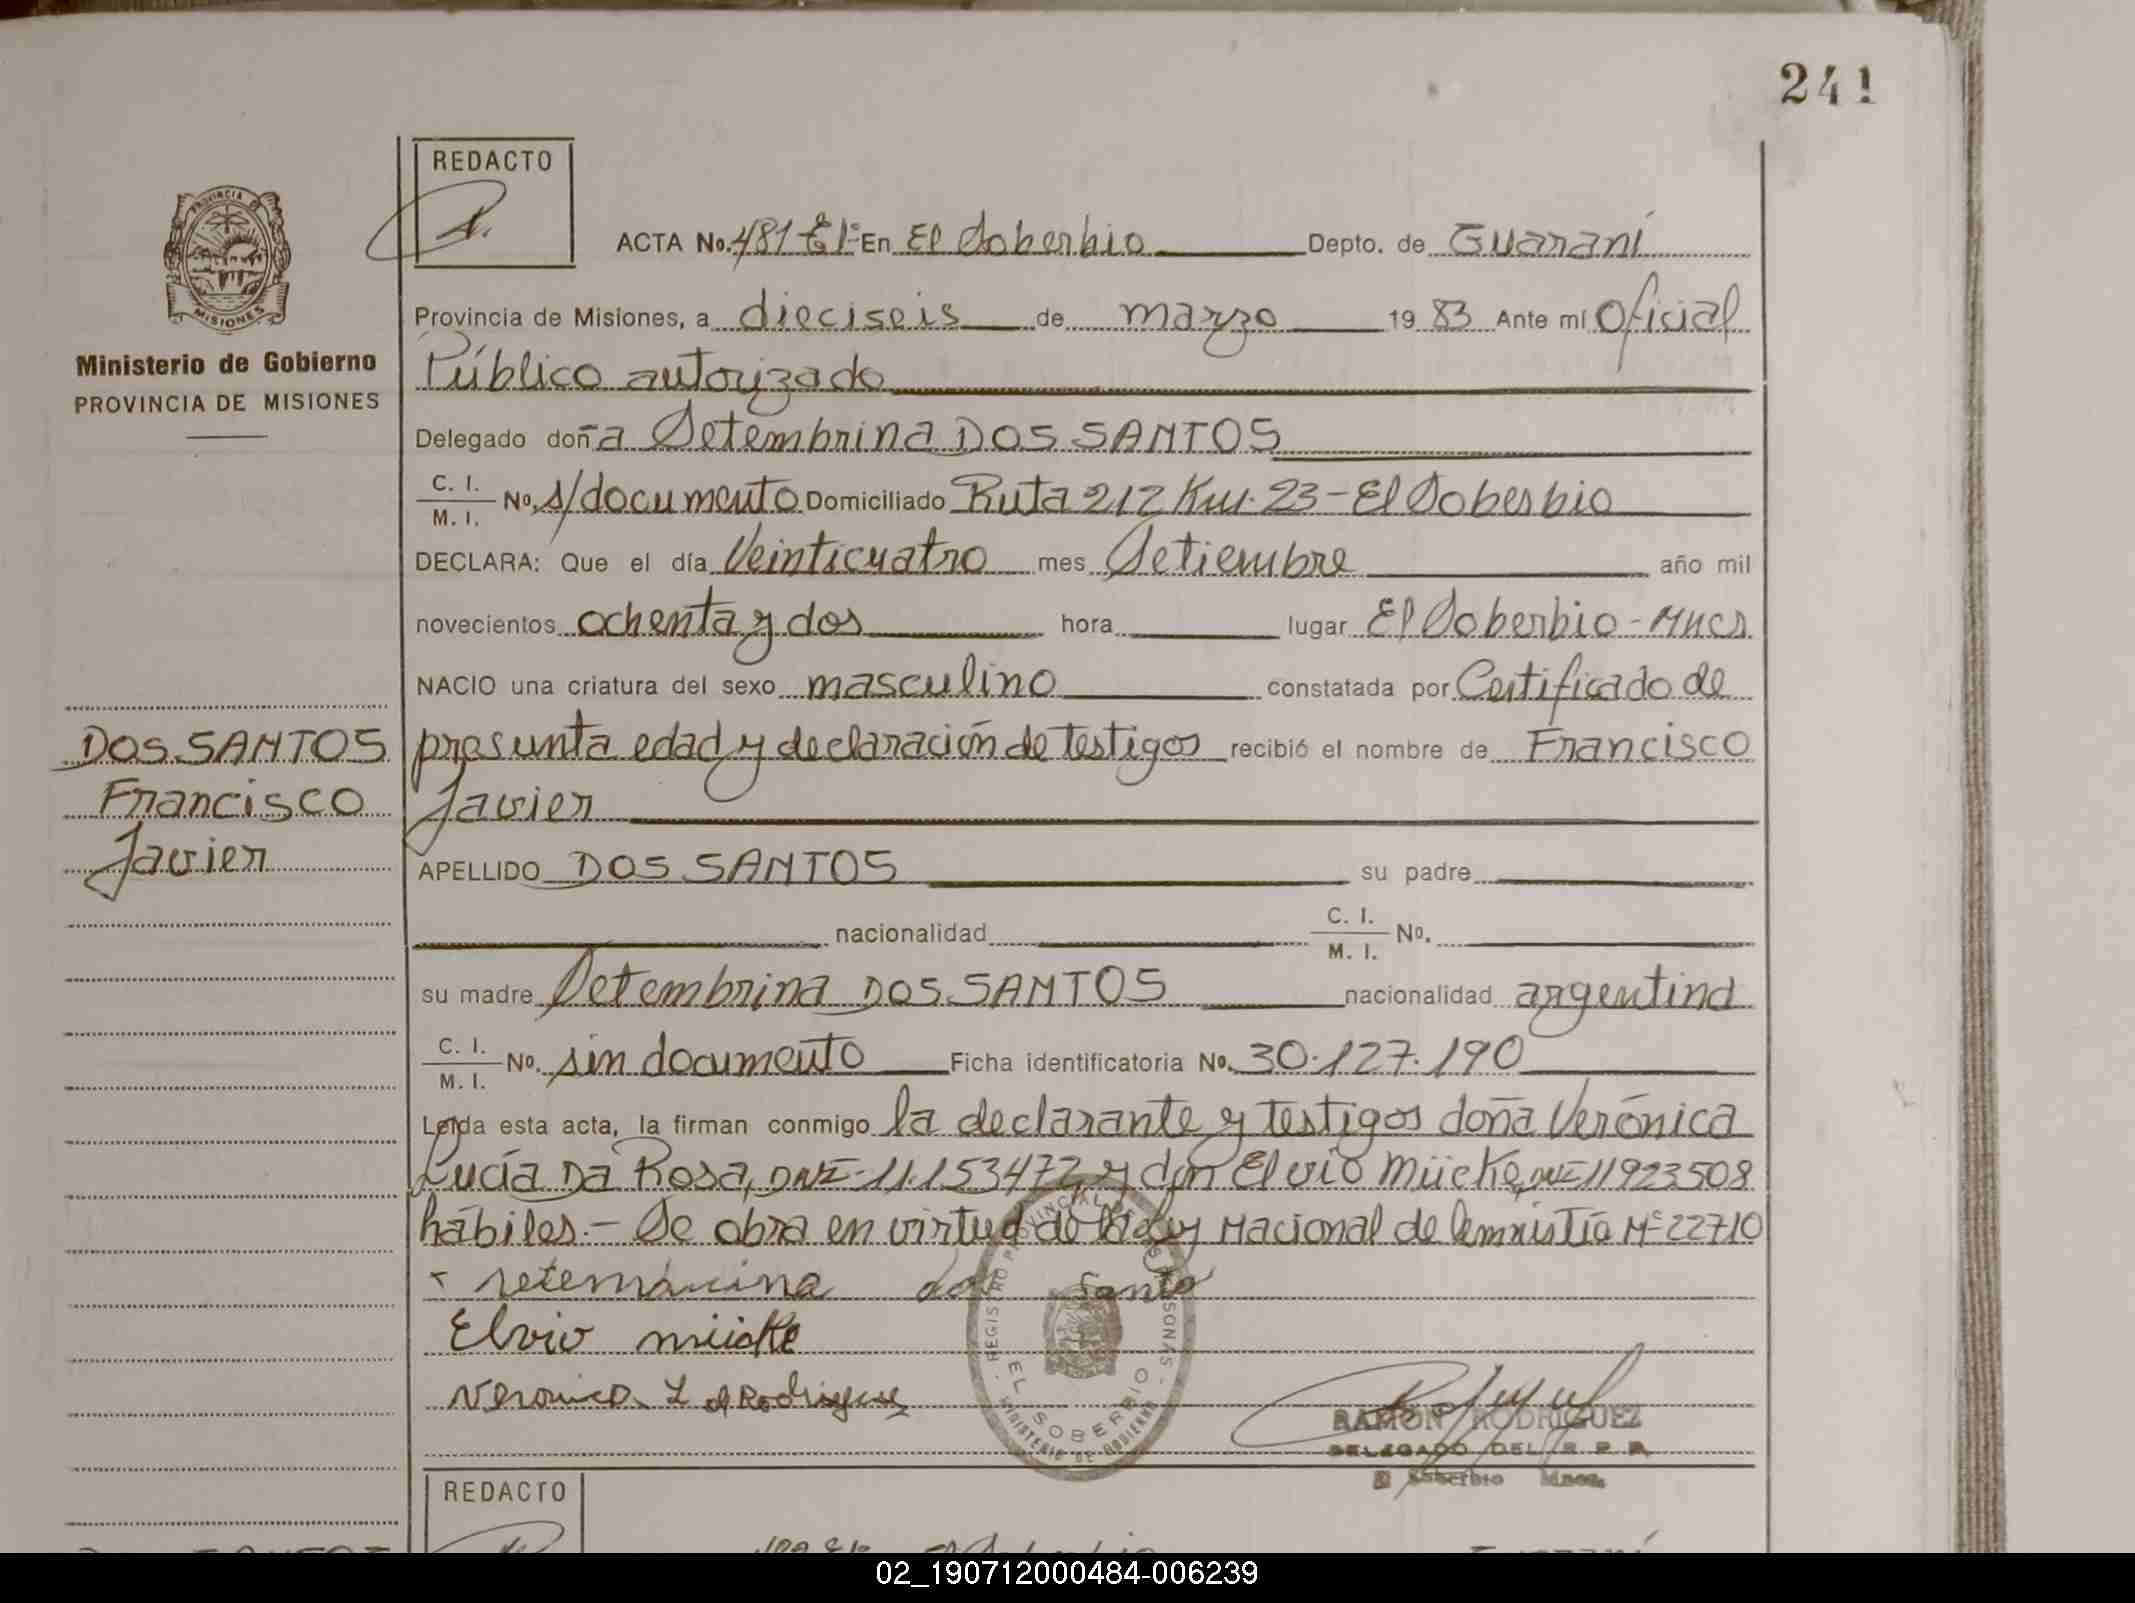 241
REDACTO
ACTA No. 481 En El Soberbio Depto. de Guaraní
PROVINCIA
MISIONES
Provincia de Misiones, a dieciseis de marzo 19 83 Ante mí Oficial
Ministerio de Gobierno
PROVINCIA DE MISIONES
Público autorizado
Delegado doña Setembrina DOS SANTOS
C. I.
M. I. No. s/documento Domiciliado Ruta 212 Km. 23 - El Soberbio
DECLARA: Que el día Veinticuatro mes Setiembre año mil
novecientos ochenta y dos hora lugar El Soberbio - Mnes
NACIO una criatura del sexo masculino constatada por Certificado de
presunta edad y declaración de testigos recibió el nombre de Francisco
Javier
DOS SANTOS
Francisco
Javier
APELLIDO DOS SANTOS su padre
nacionalidad C. I.
M. I. No.
su madre Setembrina DOS SANTOS nacionalidad argentina
C. I.
M. I. No. sin documento Ficha identificatoria No. 30.127.190
Leída esta acta, la firman conmigo la declarante y testigos doña Verónica
Lucía Da Rosa, DNI-11.153472 y don Elvio Mücke, DNI 11923.508
hábiles.- Se obra en virtud de la Ley Nacional de Amnistía Nº 22710
dos Santo
Elvio mücke
Veronica L d Rodriguez
REGISTRO PROVINCIAL DE LAS PERSONAS
EL SOBERBIO
MINISTERIO DE GOBIERNO
RAMON RODRIGUEZ
DELEGADO DEL R. P. P.
El Soberbio Mnes.
REDACTO
02_190712000484-006239